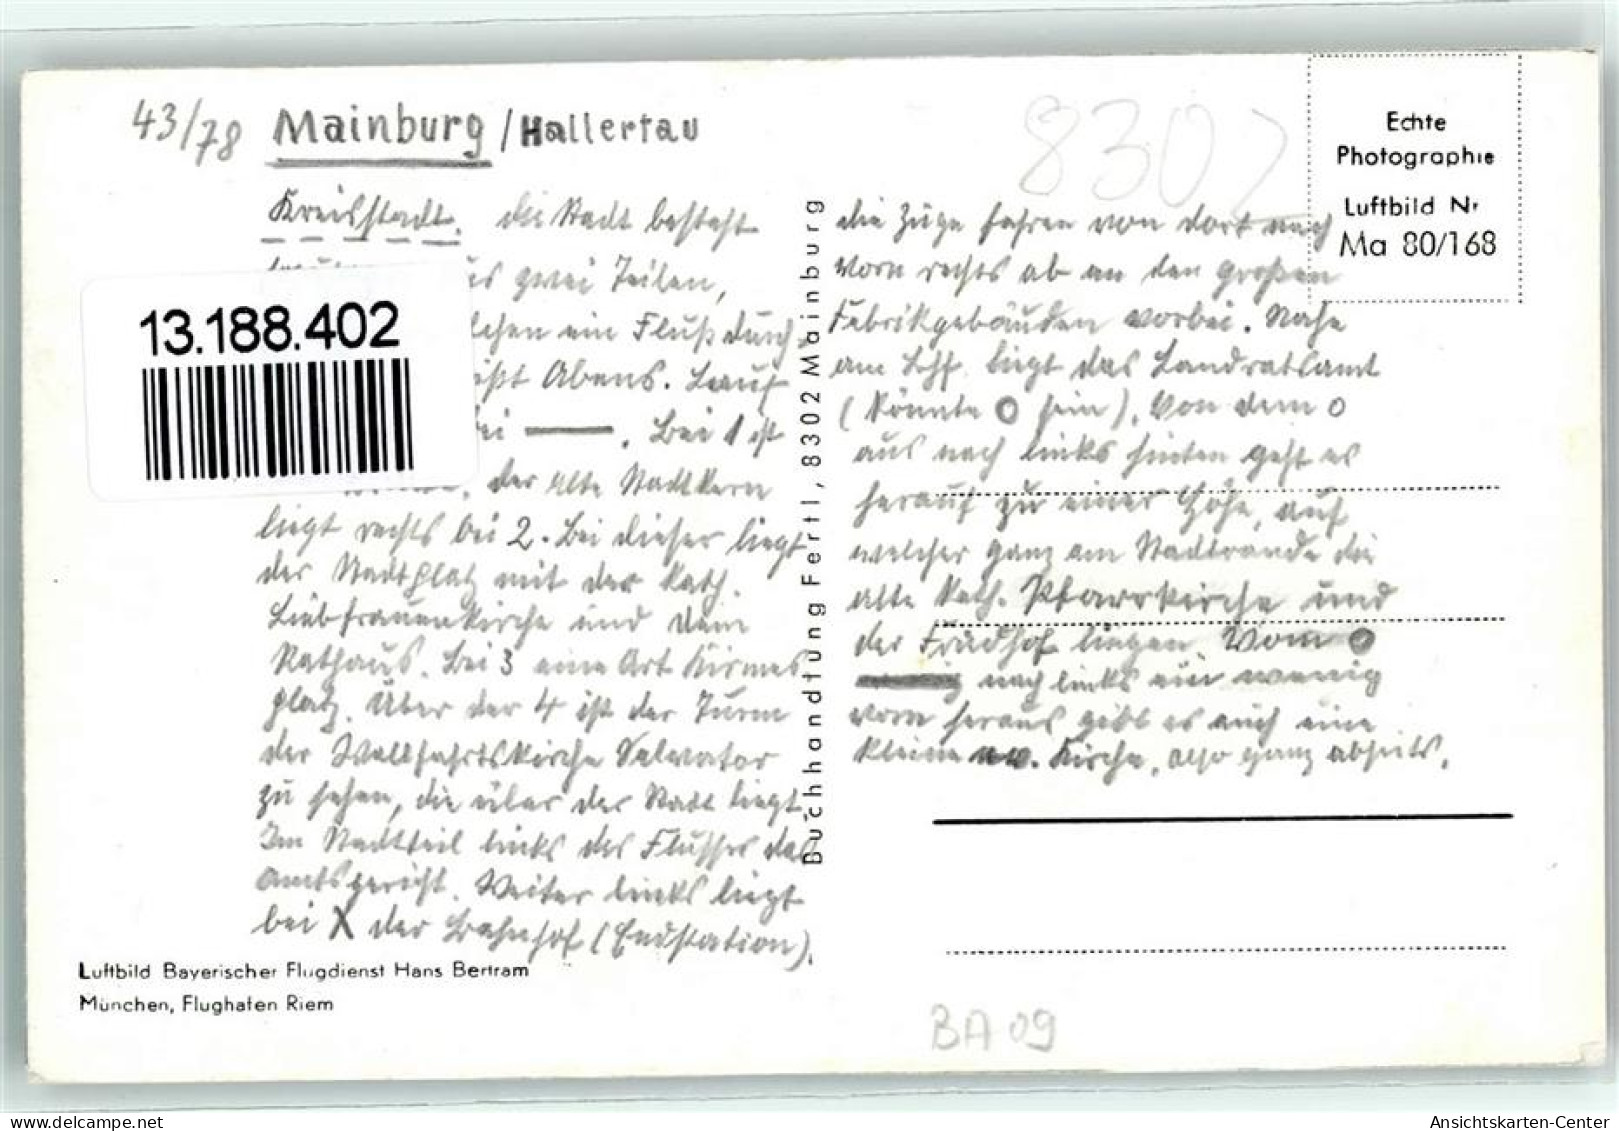 43/78 Mainburg / Hallertau
Kreisstadt. die Stadt besteht
aus zwei Teilen,
ein Fluß durch,
Abens. Lauf
bei ——. Bei 1 ist
der alte Stadtkern
liegt rechts bei 2. Bei dieser liegt
der Stadtplatz mit der Kath.
Liebfrauenkirche und dem
Rathaus. Bei 3 eine Art Kirmes
platz. Über der 4 ist der Turm
der Wallfahrtskirche Salvator
zu sehen, die über der Stadt liegt.
Im Stadtteil links des Flusses das
Amtsgericht. Weiter links liegt
bei X der Bahnhof (Endstation).
13.188.402
Luftbild Bayerischer Flugdienst Hans Bertram
München, Flughafen Riem
Buchhandlung Fertl, 8302 Mainburg
8302
Echte
Photographie
Luftbild Nr
Ma 80/168
die Züge fahren von dort nach
vorn rechts ab an den großen
Fabrikgebäuden vorbei. Nahe
am Bhf. liegt das Landratsamt
(könnte O sein). Von dem O
aus nach links hinten geht es
herauf zu einer Höhe, auf
welcher ganz am Stadtrande die
alte kath. Pfarrkirche und
der Friedhof liegen. Vom O
nach links ein wenig
vorn heraus gibt es auch eine
kleine ev. Kirche, also ganz abseits.
BA 09
Ansichtskarten-Center